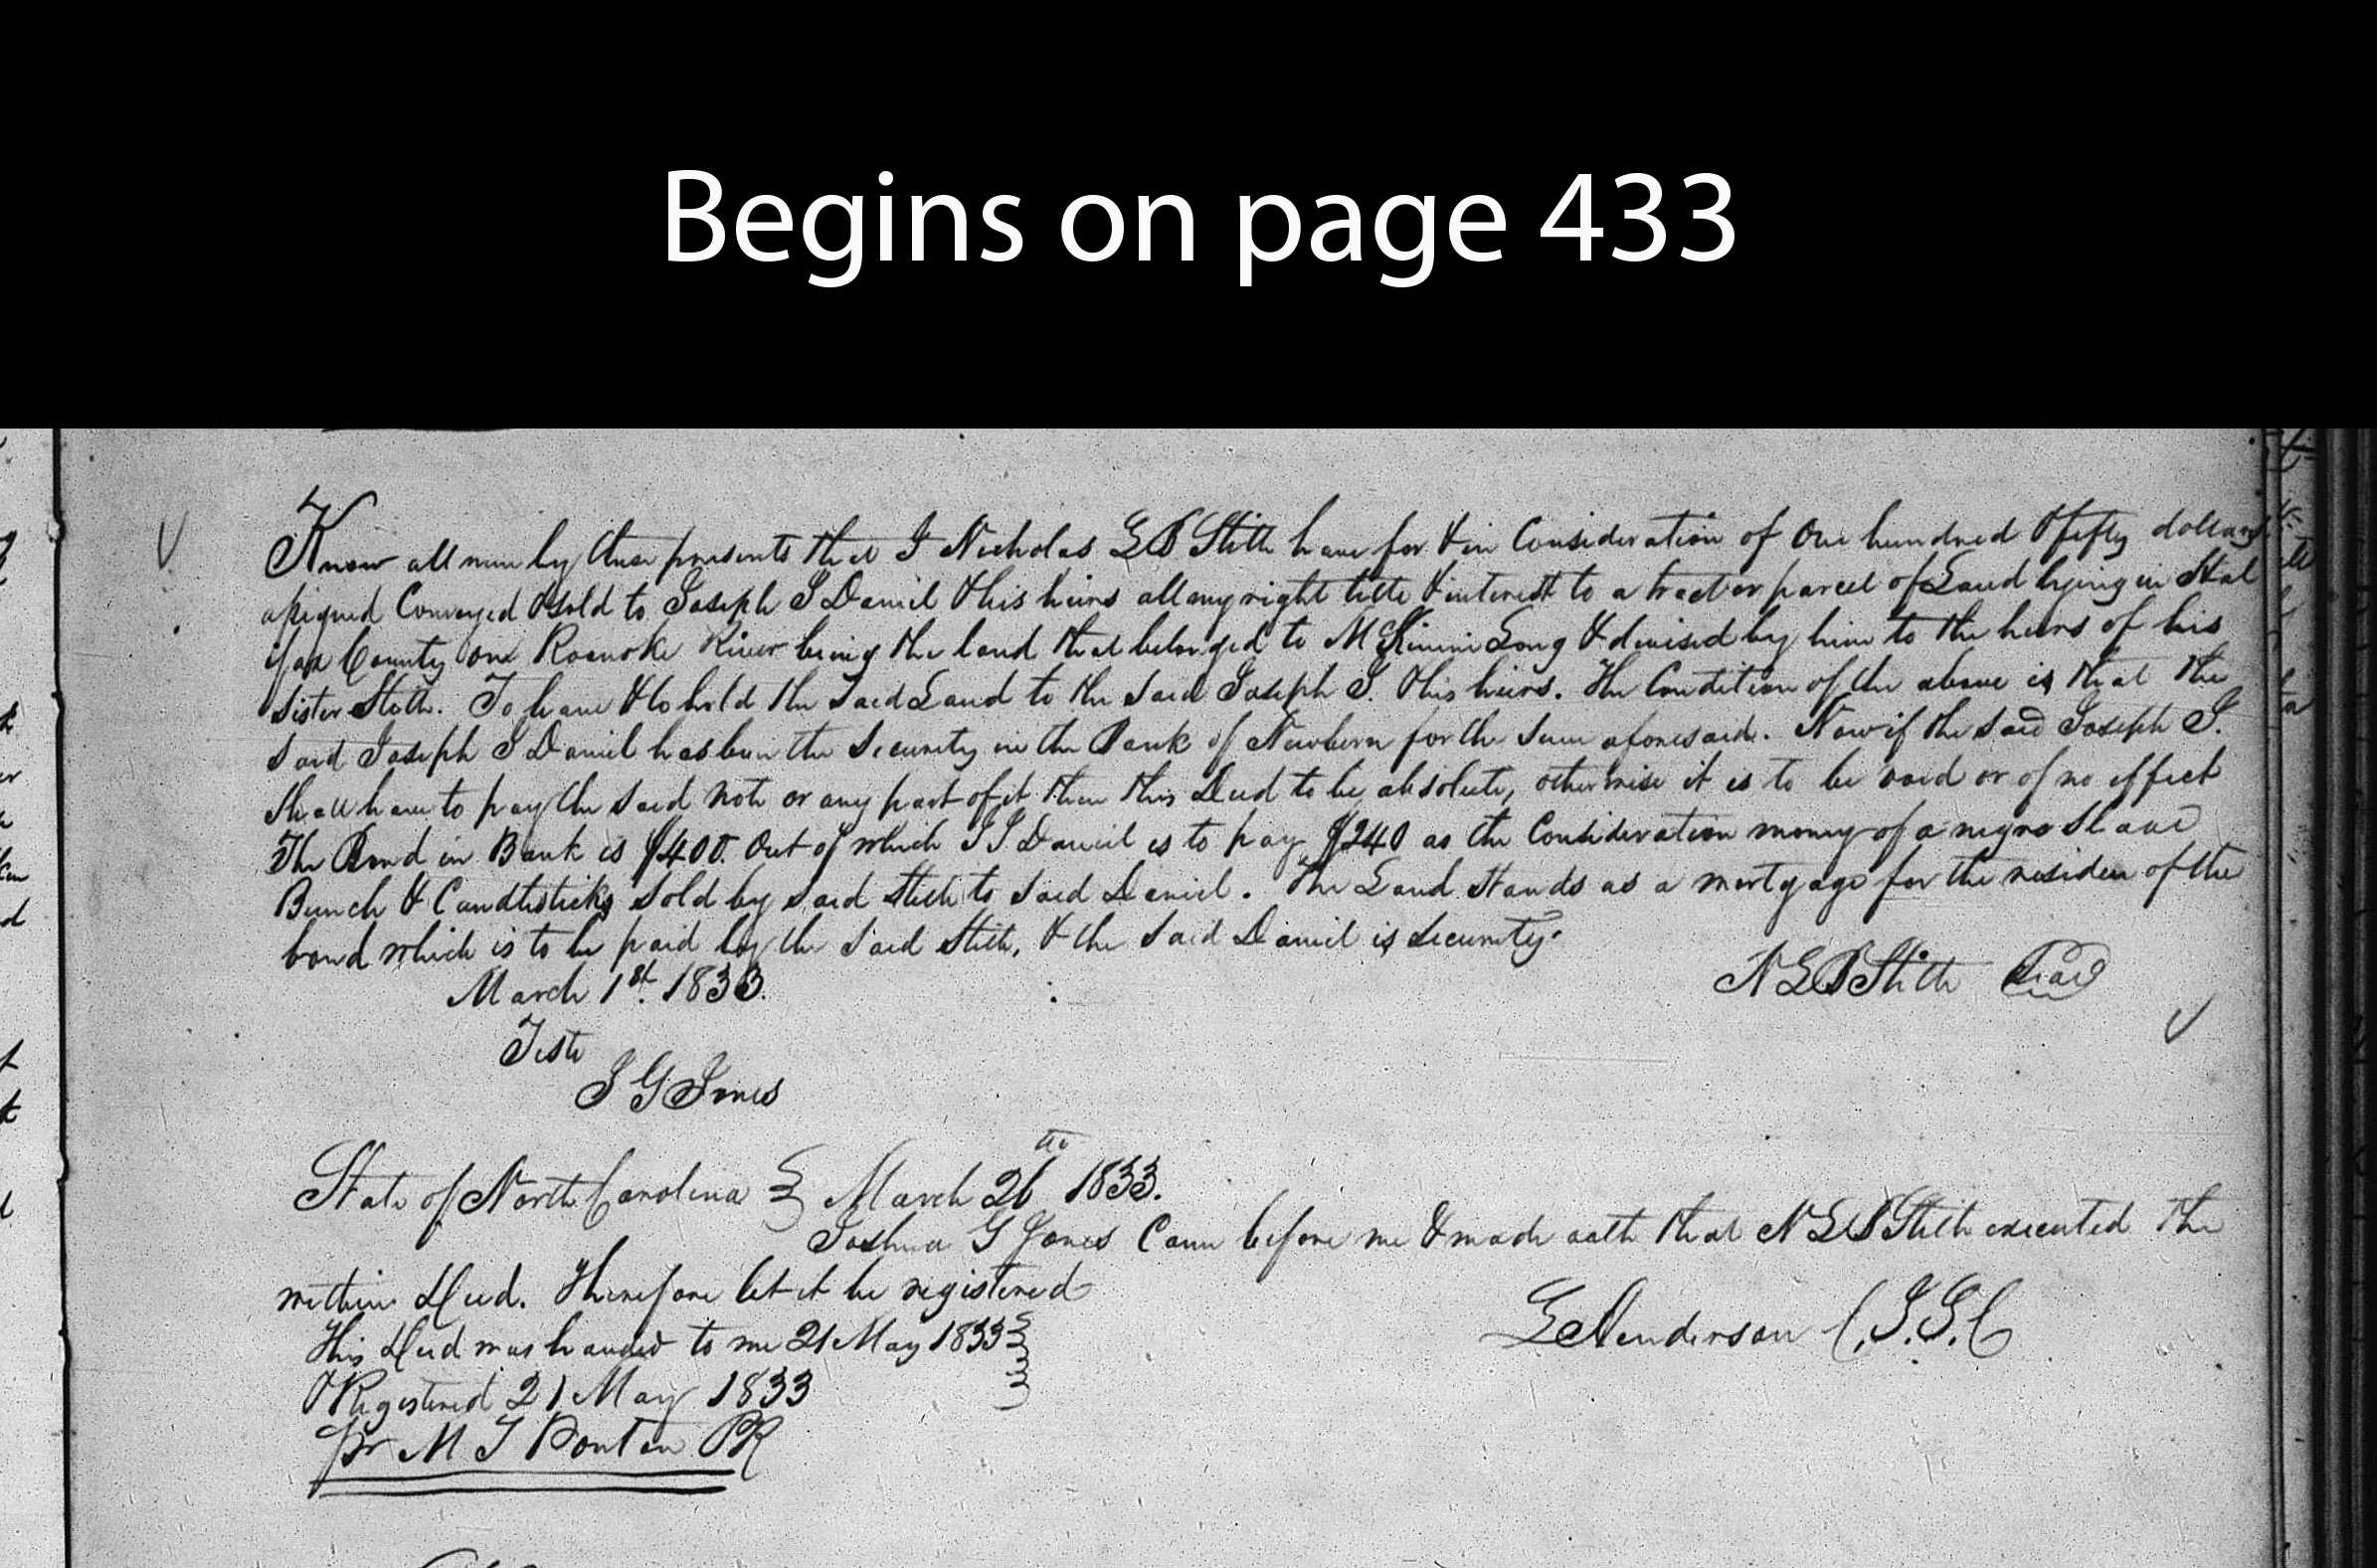 Begins on page 433
Know all men by these presents that I Nicholas L B Stith have for & in Consideration of One hundred & fifty dollars
assigned Conveyed & sold to Joseph J Daniel & his heirs all my right title & interest to a tract or parcel of Land lying in Hal
ifax County on Roanoke River being the land that belonged to McKinnie Long & devised by him to the heirs of his
Sister Stith. To have & to hold the said Land to the said Joseph J. & his heirs. The Condition of the above is that the
said Joseph J Daniel has been the Security in the Bank of Newbern for the sum aforesaid. Now if the said Joseph J.
shall have to pay the said note or any part of it then this Deed to be absolute, otherwise it is to be void or of no effect
The Bond in Bank is $400. Out of which J J Daniel is to pay $240 as the Consideration money of a negro Slave
Bunch & Candlesticks sold by said Stith to said Daniel. The Land stands as a mortgage for the residue of the
bond which is to be paid by the said Stith, & the said Daniel is security.
March 1st. 1833. N L B Stith Seal
Teste
J G Jones
State of North Carolina March 26th 1833.
Joshua G Jones Came before me & made oath that N L B Stith executed the
within Deed. Therefore let it be registered
This Deed was handed to me 21 May 1833 L Henderson C.J.S.C
& Registered 21 May 1833
pr M T Ponton PR